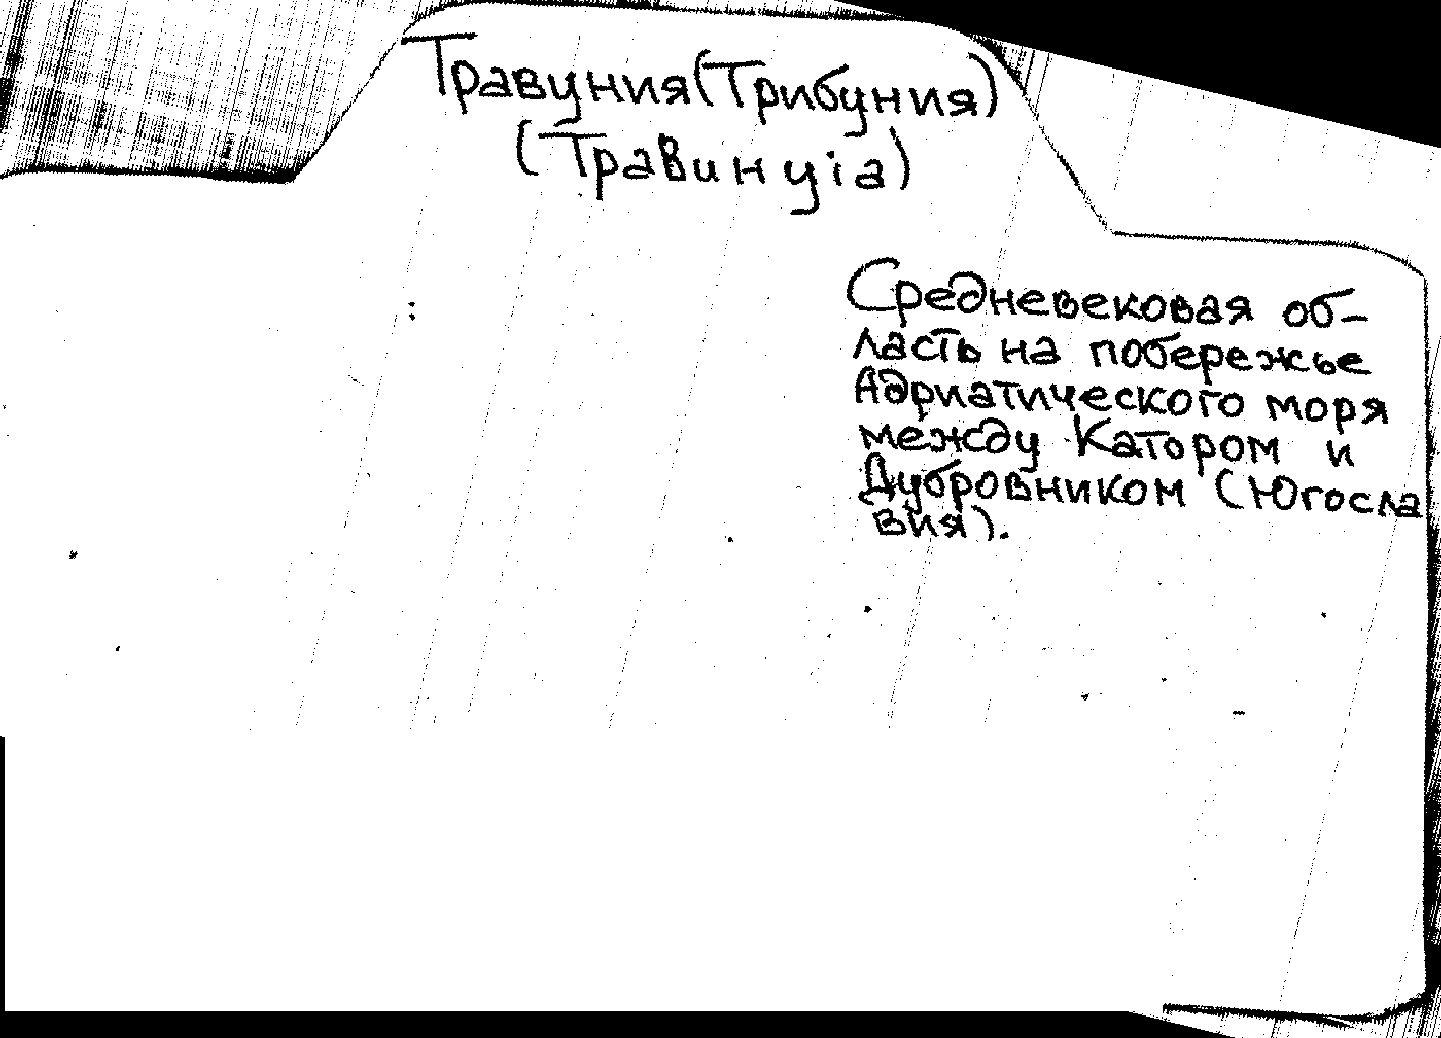 Травуния (Трибуния)
(Травинуіа)
Средневековая об-
ласть на побережье
Адриатического моря
между Катором и
Дубровником (Югосла
вия).